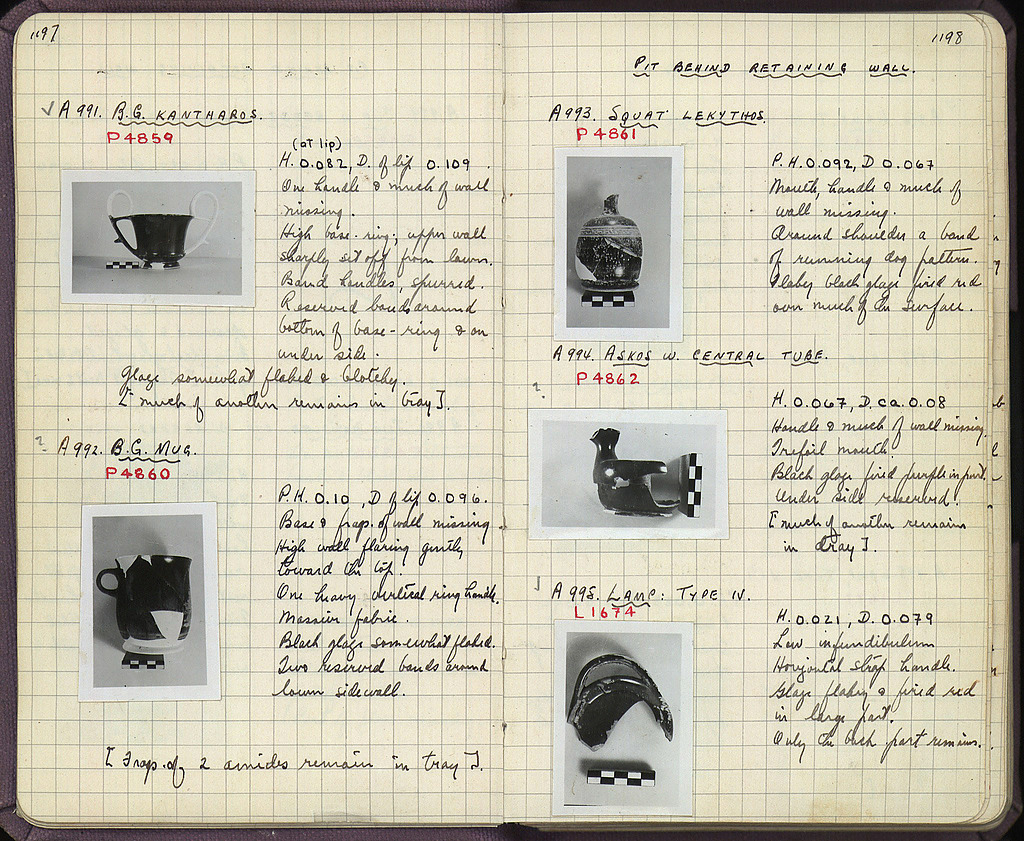 1197
A 991. B.G. KANTHAROS.
P 4859
(at lip)
H. 0.082, D. of lip 0.109
One handle & much of wall
missing.
High base-ring; upper wall
sharply set off from lower.
Band handles, spurred.
Reserved bands around
bottom of base-ring & on
under side.
Glaze somewhat flaked & blotchy.
[much of another remains in tray].
? A 992. B.G. MUG.
P 4860
P.H. 0.10, D of lip 0.096.
Base & frags. of wall missing
High wall flaring gently
toward the top.
One heavy vertical ring handle.
Massive fabric.
Black glaze somewhat flaked.
Two reserved bands around
lower sidewall.
[Frags. of 2 similar remain in tray].
1198
PIT BEHIND RETAINING WALL.
A 993. SQUAT LEKYTHOS.
P 4861
P.H. 0.092, D 0.067
Mouth, handle & much of
wall missing.
Around shoulder a band
of running dog pattern.
Flakey black glaze fired red
over much of the surface.
A 994. ASKOS W. CENTRAL TUBE.
P 4862
?
H. 0.067, D. ca. 0.08
Handle & much of wall missing.
Trefoil mouth.
Black glaze fired purple in part.
Under side reserved.
[much of another remains
in tray].
A 995. LAMP: TYPE IV.
L 1674
H. 0.021, D. 0.079
Low infundibulum
Horizontal strap handle.
Glaze flakey & fired red
in large part.
Only the back part remains.